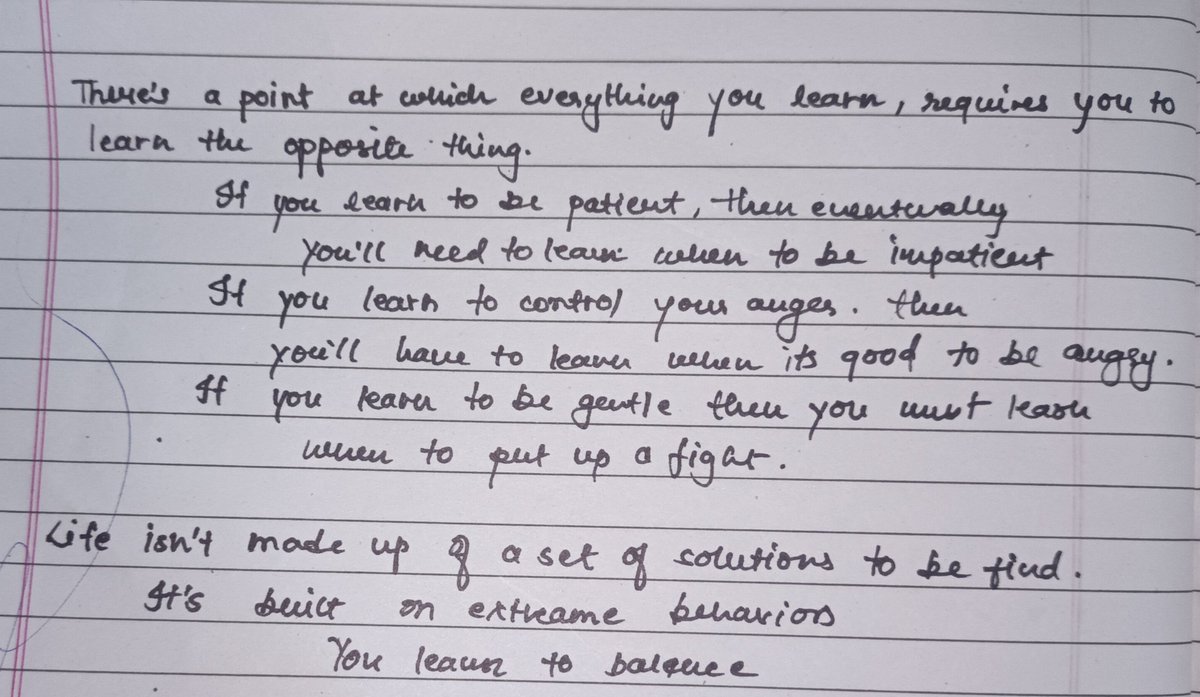 There's a point at which everything you learn, requires you to
learn the opposite thing.
If you learn to be patient, then eventually
you'll need to learn when to be impatient
If you learn to control your anger. then
you'll have to learn when its good to be angry.
If you learn to be gentle then you must learn
when to put up a fight.
Life isn't made up of a set of solutions to be find.
It's built on extreame behaviors
You learn to balance